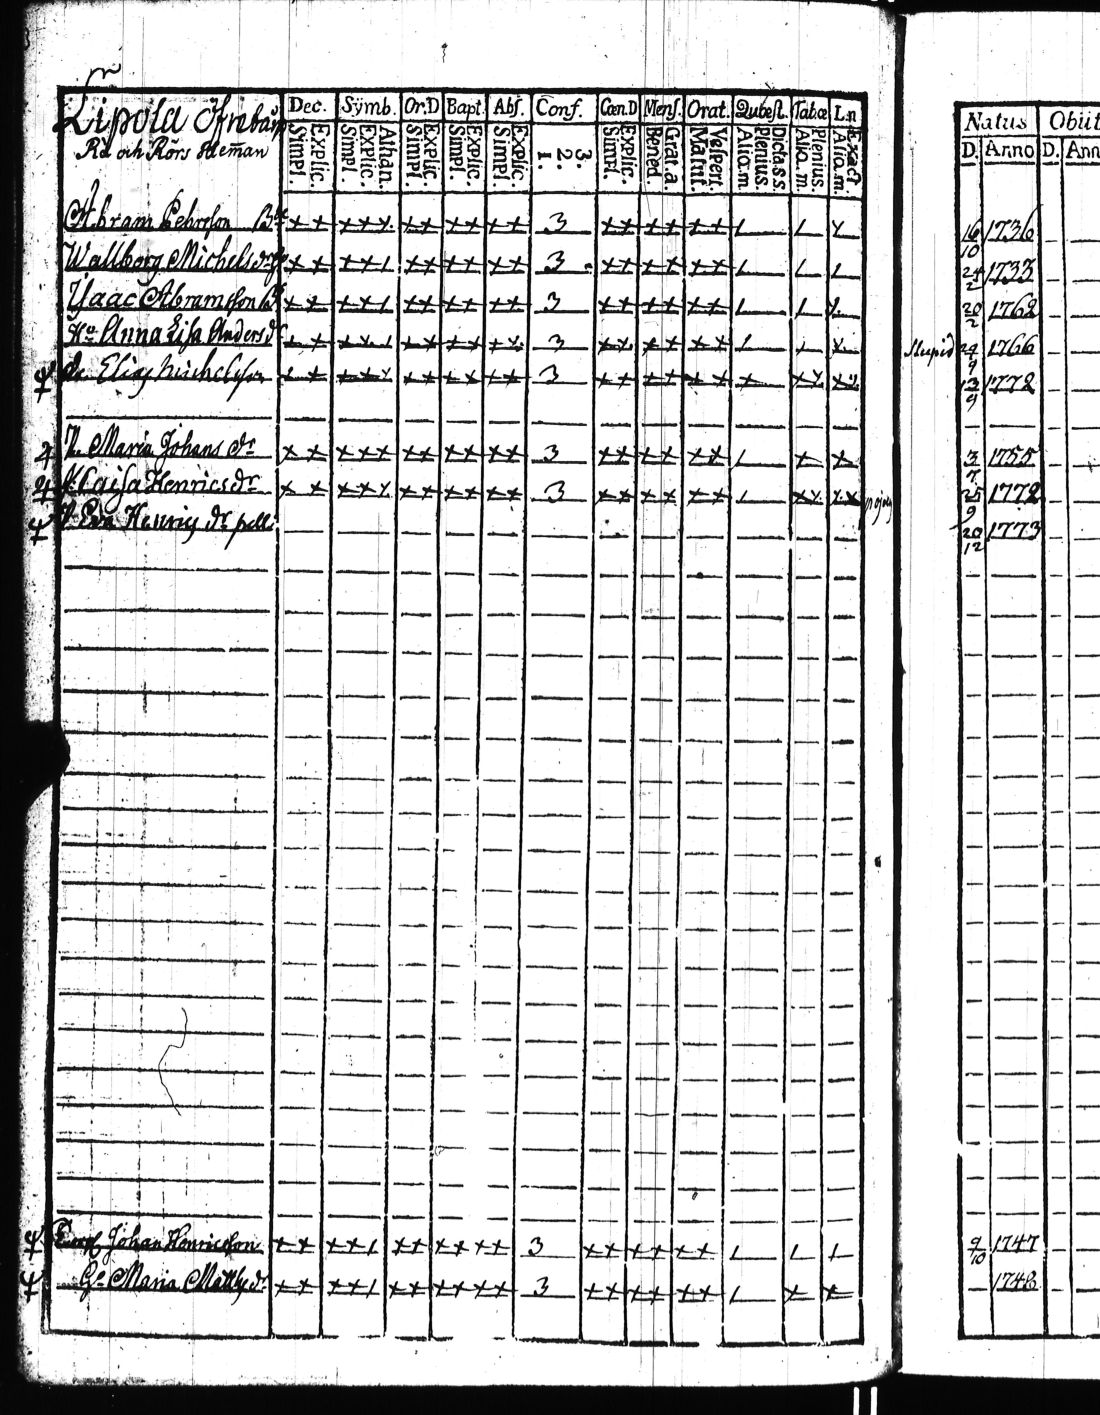 Lipola
Rå och Rörs
Dec. Sÿmb. Or.D Bapt. Abs. Conf. Cœn.D Mens. Orat. Quæst. Tabœ L.n
Simpl. Explic. Simpl. Explic. Athan. Simpl. Explic. Simpl. Explic. Simpl. Explic. 1. 2. 3. Simpl. Explic. Bened. Grat.a. Matut. Vespert. Aliq.m. Plenius. Dicta.ss Aliq.m. Plenius. Aliq.m. Exact.
Natus Obiit
D. Anno D. Ann
Abram Pehrsson 3 16/10 1736
Wallborg Michelsdr 3 24/2 1733
Ysaac Abramsson 3 20/2 1762
Hu Anna Lisa Andersdr 3 stupid 24/9 1766
Dr Elias Michelsson 3 13/9 1772
P. Maria Johans dr 3 3/7 1755
P. Caisa Henricsdr 3 25/9 1772
P. Eva Henrics dr pell. 20/12 1773
Johan Henricsson 3 9/10 1747
Maria Matts dr 3 1748